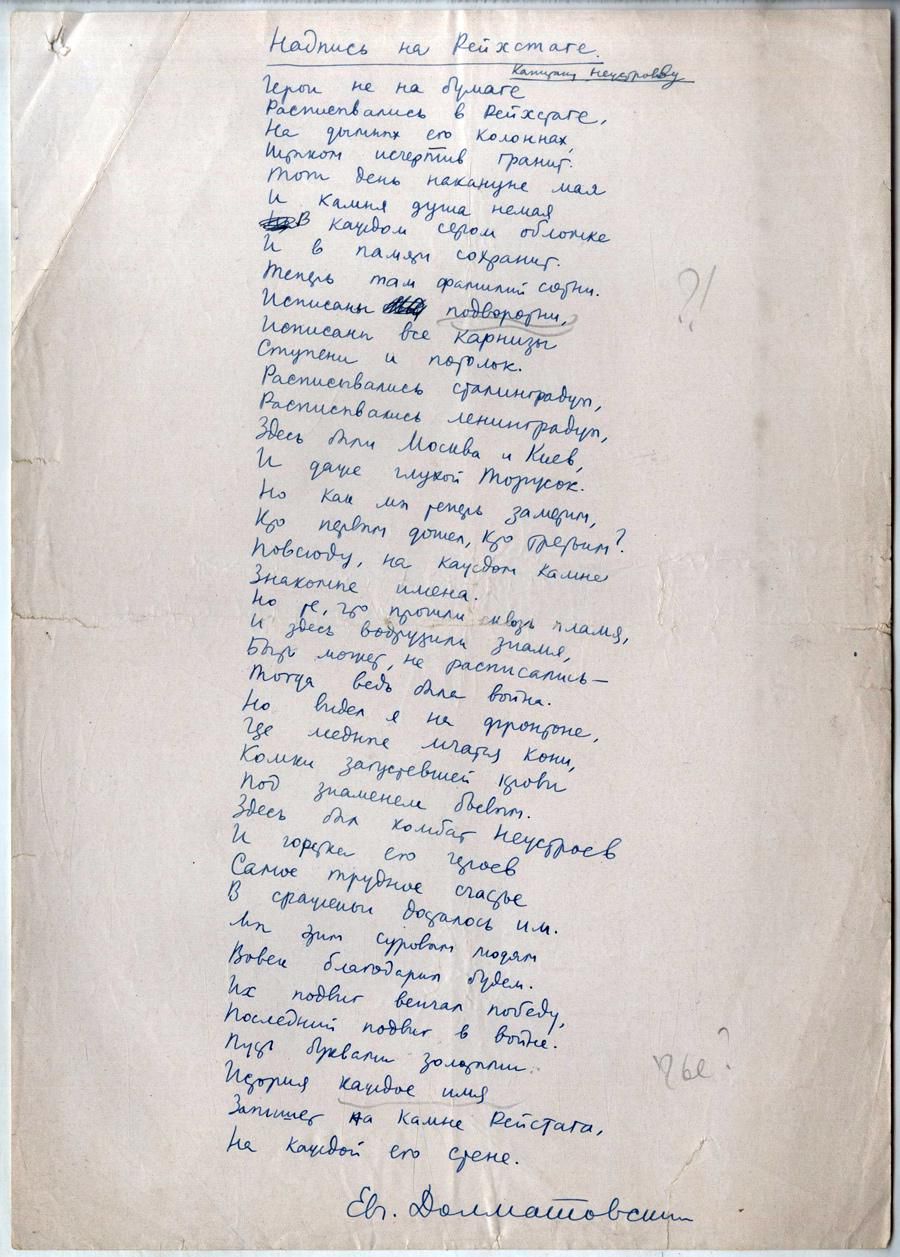 Надпись на Рейхстаге.
Капитану Неустроеву
Герои не на бумаге
Расписывались в Рейхстаге,
На дымных его колоннах,
Штыком исчертив гранит.
Тот день накануне мая
И камня душа немая
В каждом сером обломке
И в памяти сохранит.
Теперь там фамилий сотни.
Исписаны подворотни,
?!
Исписаны все карнизы
Ступени и потолок.
Расписывались сталинградцы,
Расписывались ленинградцы,
Здесь были Москва и Киев,
И даже глухой Торжок.
Но как мы теперь заметим,
Кто первым дошел, кто третьим?
Повсюду, на каждом камне
Знакомые имена.
Но те, что прошли сквозь пламя,
И здесь водрузили знамя,
Быть может, не расписались—
Тогда ведь была война.
Но видел я на фронтоне,
Где медные мчатся кони,
Комки загустевшей крови
Под знаменем боевым.
Здесь был комбат Неустроев
И горстка его героев
Самое трудное счастье
В сраженьи досталось им.
Мы этим суровым людям
Вовек благодарны будем.
Их подвиг венчал победу,
Последний подвиг в войне.
Пусть буквами золотыми
История каждое имя
чье?
Запишет на камне Рейстага,
На каждой его стене.
Евг. Долматовский